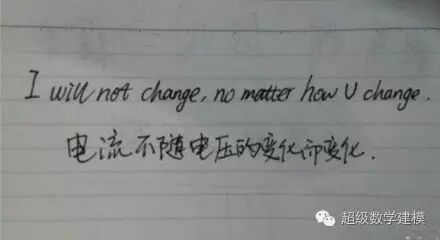 I will not change, no matter how U change.
电流不随电压的变化而变化.
超级数学建模